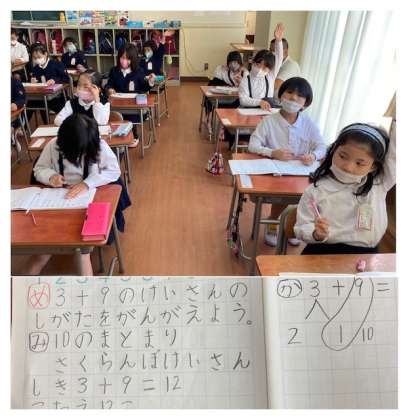 め 3+9のけいさんの
しかたをかんがえよう。
み 10のまとまり
さくらんぼけいさん
しき3+9=12
こたえ12こ
か 3+9=
2 1 10